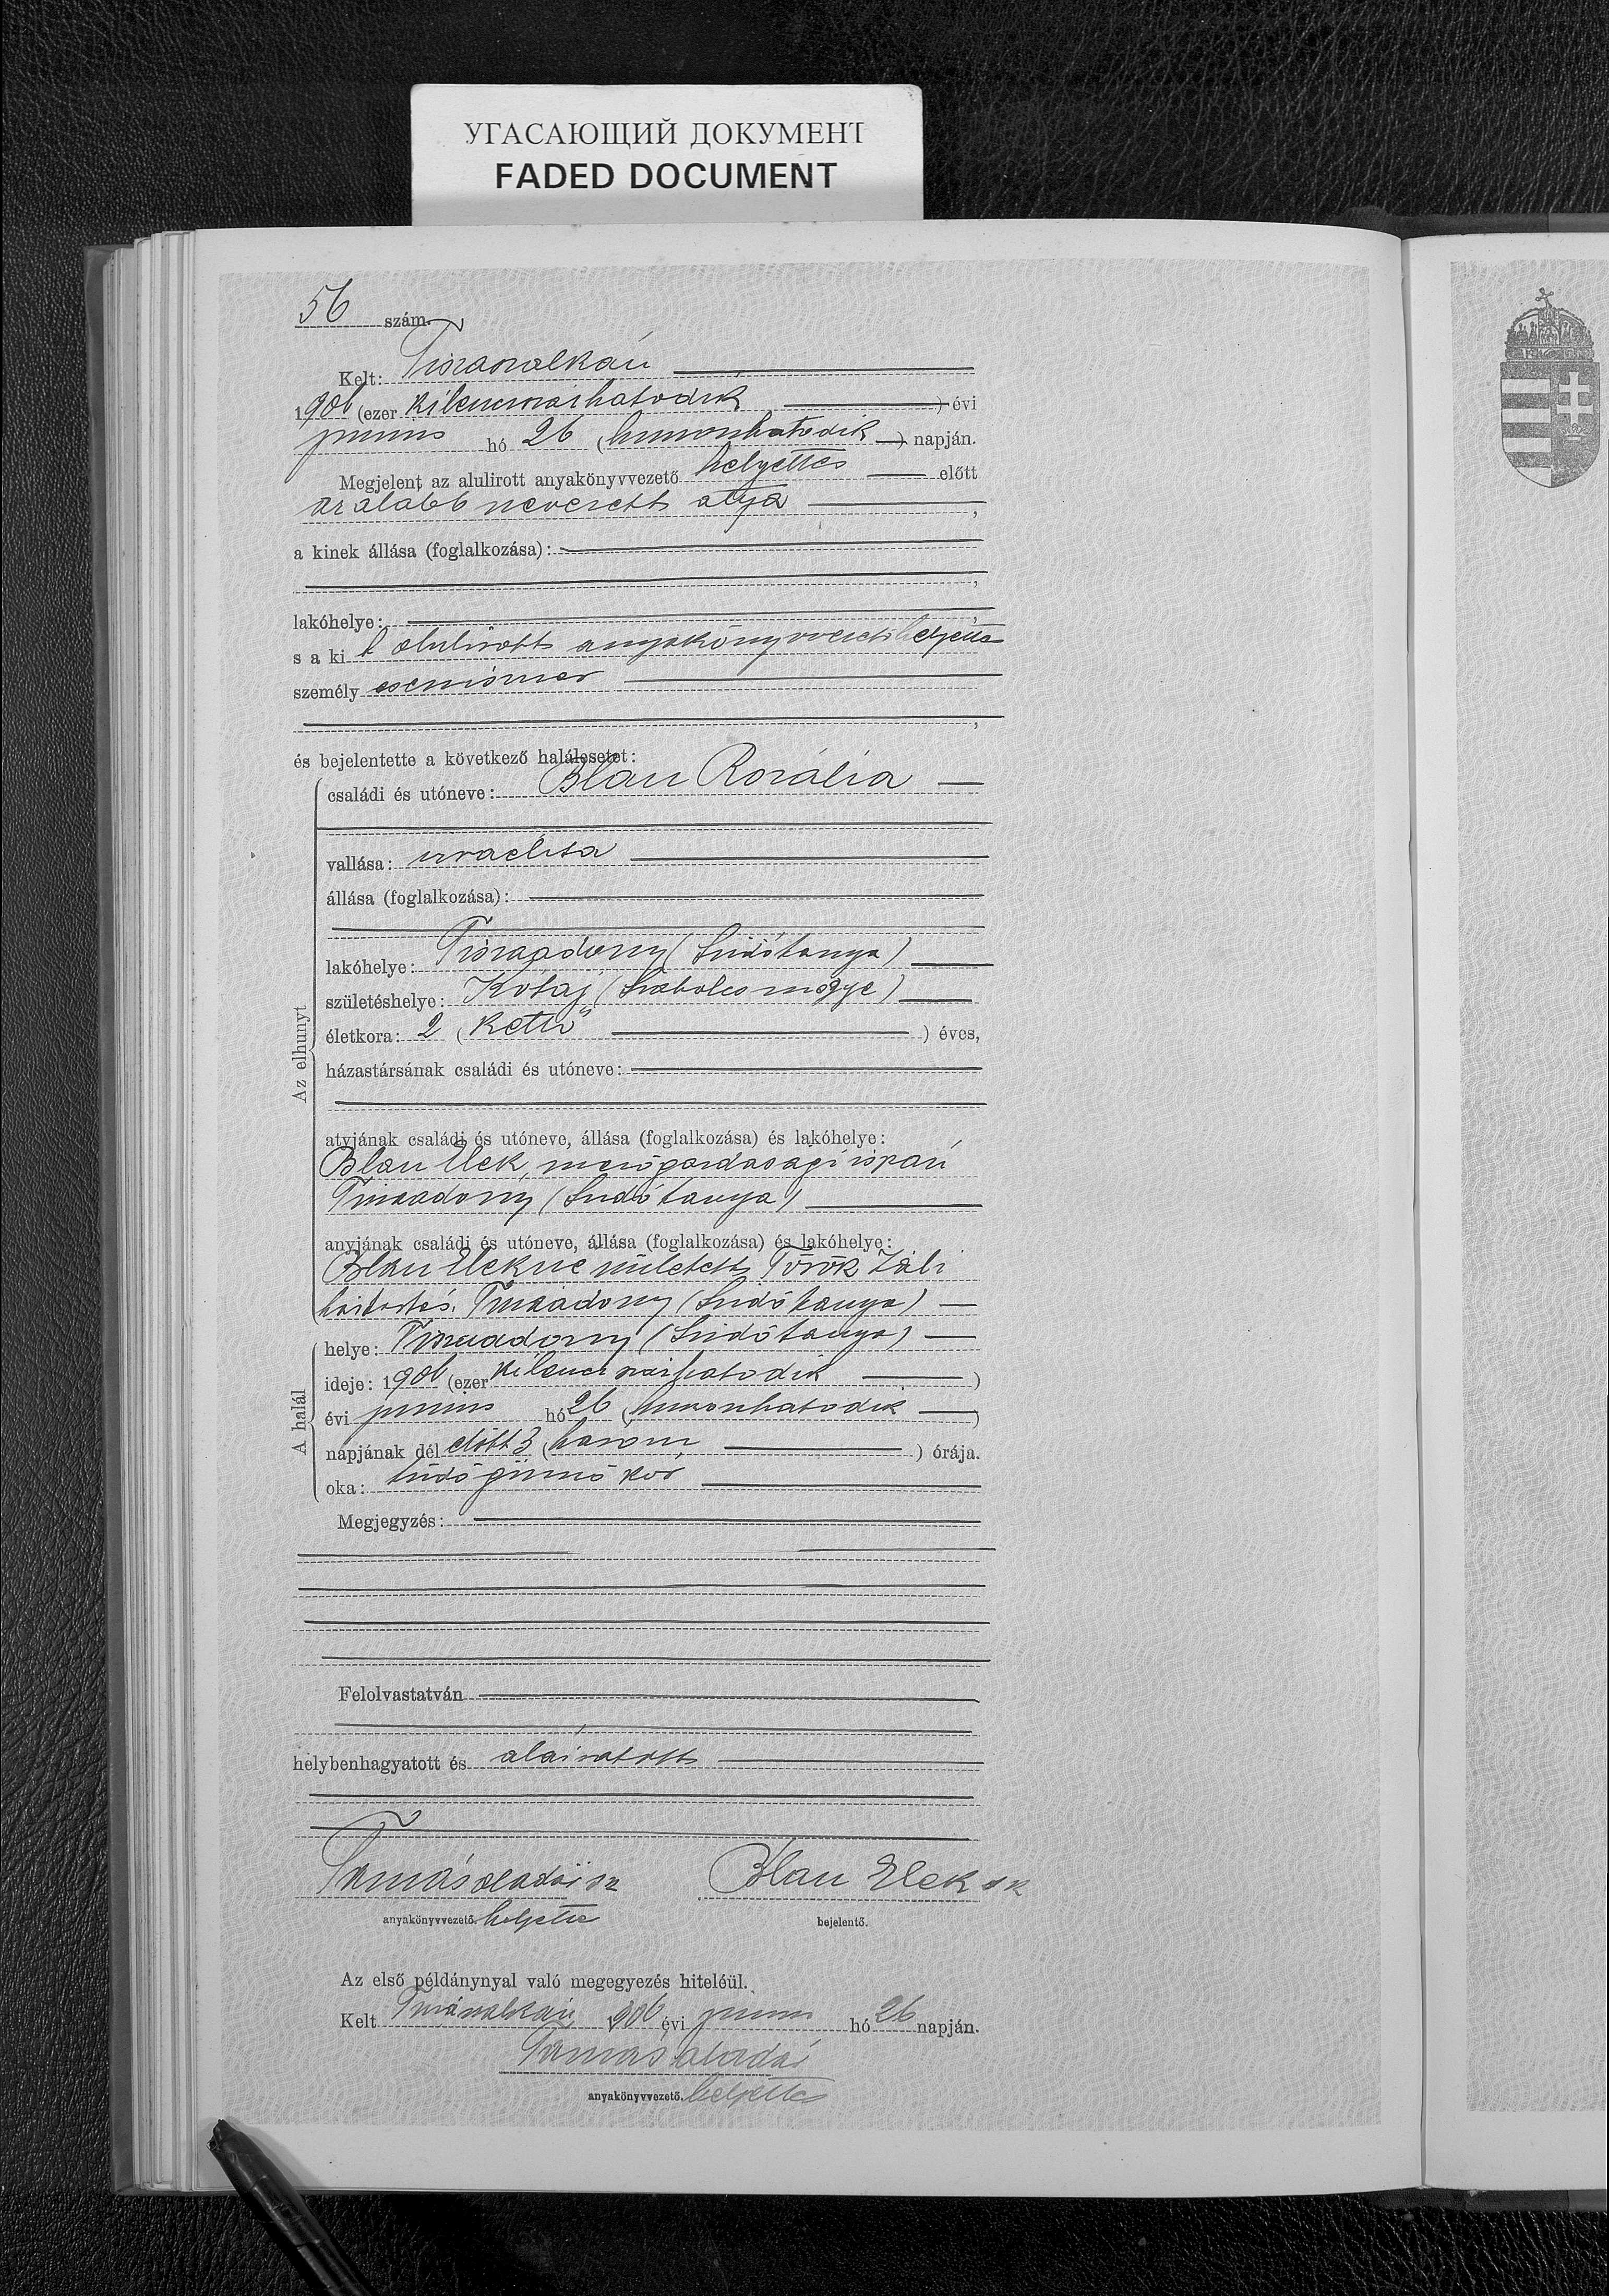 УГАСАЮЩИЙ ДОКУМЕНТ
FADED DOCUMENT
56 szám.
Kelt: Tiszaszalkán
1906 (ezer kilencszázhatodik) évi
junius hó 26 (huszonhatodik) napján.
Megjelent az alulirott anyakönyvvezető helyettes előtt
az alább nevezett atya,
a kinek állása (foglalkozása):
lakóhelye:
s a kit alulirott anyakönyvvezető helyettes
személyesen ismer
és bejelentette a következő halálesetet:
Az elhunyt
családi és utóneve: Blau Rozália
vallása: izraelita
állása (foglalkozása):
lakóhelye: Tiszaadony
születéshelye: Kótaj (Szabolcs megye)
életkora: 2 (kettő) éves,
házastársának családi és utóneve:
atyjának családi és utóneve, állása (foglalkozása) és lakóhelye:
Blau Elek, mezőgazdasági ispán
Tiszaadony
anyjának családi és utóneve, állása (foglalkozása) és lakóhelye:
Blau Elekné született Török Záli
háztartás. Tiszaadony
A halál
helye: Tiszaadony
ideje: 1906 (ezer kilencszázhatodik)
évi junius hó 26 (huszonhatodik)
napjának dél előtt 3 (három) órája.
oka: tüdőgümőkór
Megjegyzés:
Felolvastatván
helybenhagyatott és aláiratott
Tamás Aladár sk Blau Elek sk
anyakönyvvezető. helyettes bejelentő.
Az első példánynyal való megegyezés hiteléül.
Kelt Tiszaszalkán 1906 évi junius hó 26 napján.
Tamás Aladár
anyakönyvvezető. helyettes